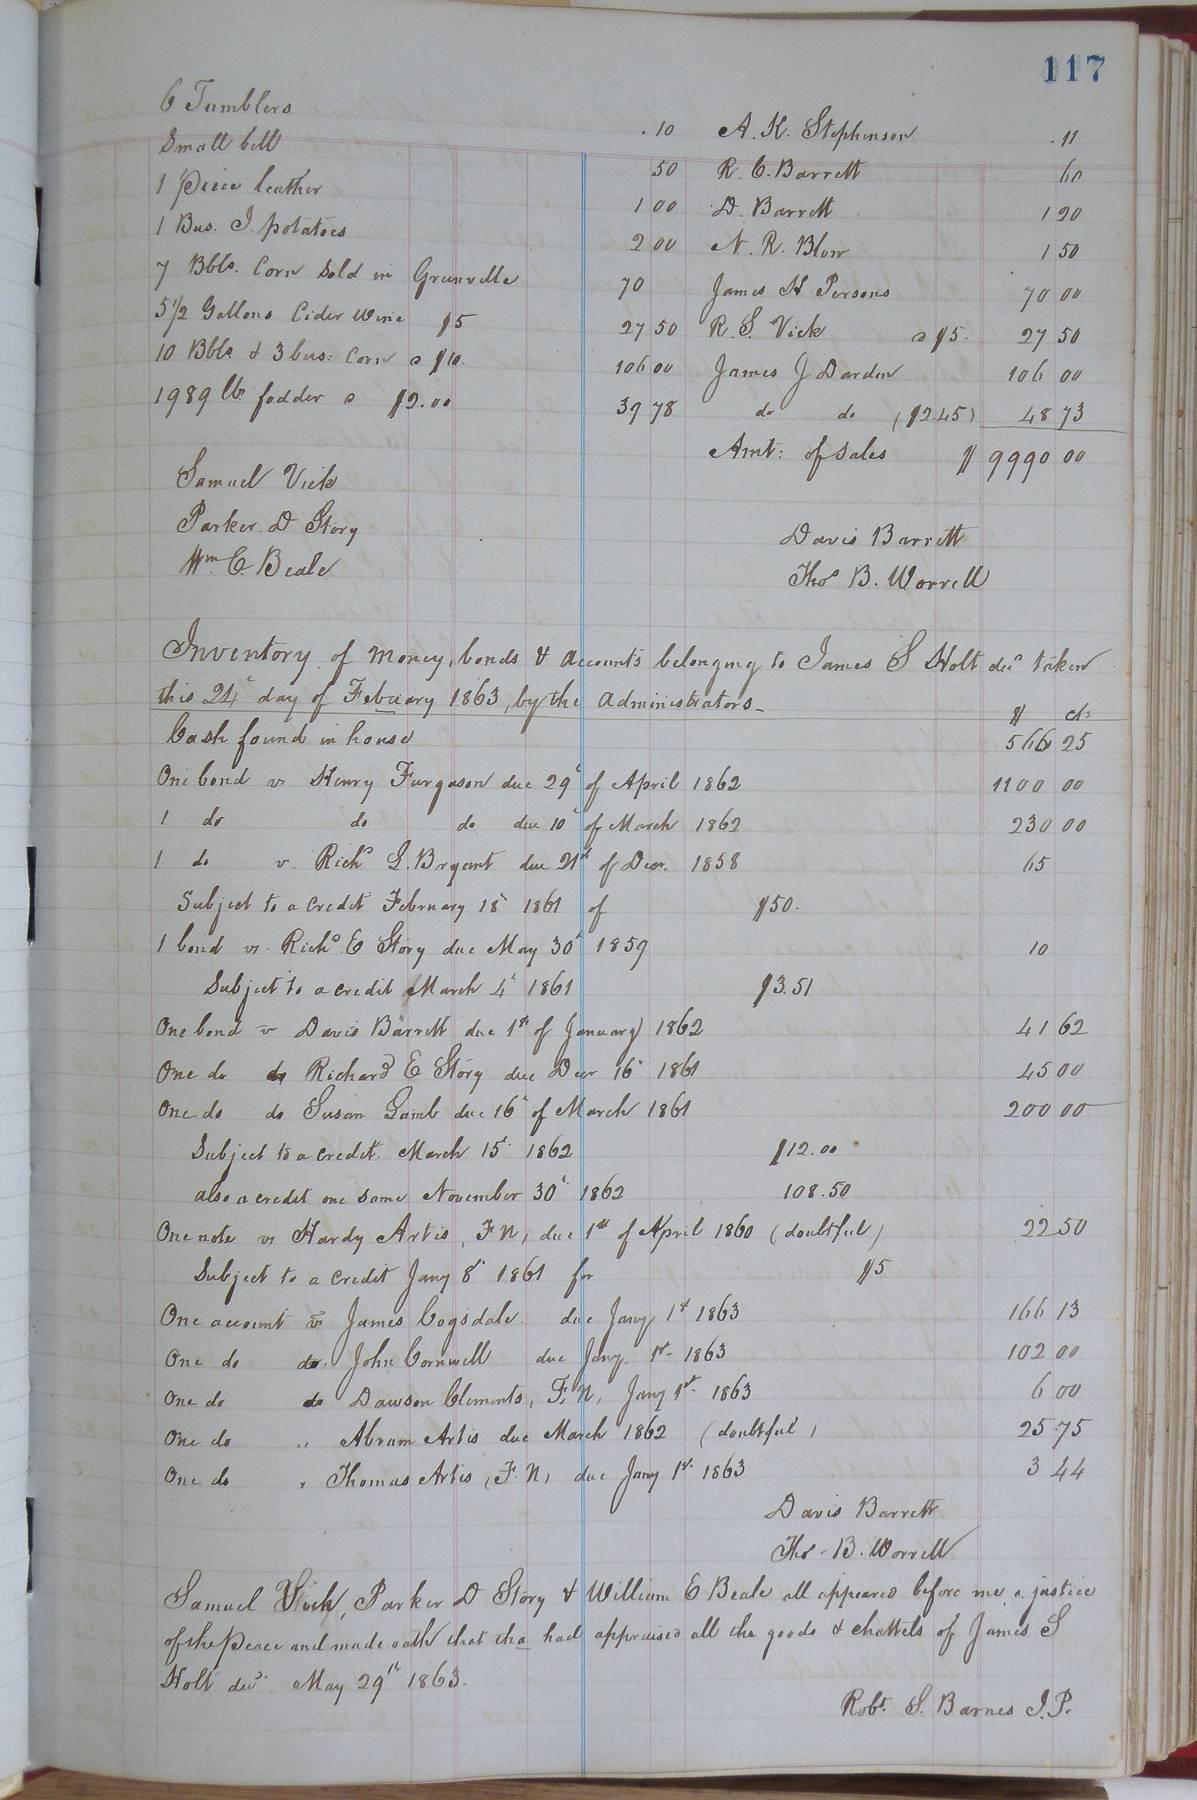 117
6 Tumblers .10 A. K. Stephenson .11
Small bell 50 R. C. Barrett 60
1 piece leather 1 00 D. Barrett 1 20
1 Bus. I. potatoes 2 00 N. R. Blow 1 50
7 Bbls. Corn sold in Greenville 70 James H Persons 70 00
5 1/2 Gallons Cider Wine $5 27 50 R. S. Vick @ $5. 27 50
10 Bbls & 3 bus: Corn @ $10. 106 00 James J Darden 106 00
1989 lbs fodder @ $2.00 39 78 do do ($2.45) 48 73
Amt: of sales $ 9990 00
Samuel Vick
Parker. D Story
Wm C. Beale
Davis Barrett
Thos B. Worrell
Inventory of money, bonds & accounts belonging to James S Holt decd taken
this 24th day of Febuary 1863, by the administrators
$ cts
Cash found in house 566 25
One bond vs Henry Furgason due 29th of April 1862 1100 00
1 do do do due 10th of March 1862 230 00
1 do v. Richd G. Bryant due 21st of Decr. 1858 65
Subject to a credit February 18th 1861 of $50.
1 bond vs. Richd. E Story due May 30th 1859 10
Subject to a credit March 4th 1861 $3.51
One bond vs Davis Barrett due 1st of January 1862 41 62
One do do Richard E Story due Decr 16th 1861 45 00
One do do Susan Gamb due 16th of March 1861 200 00
Subject to a credit. March 15th 1862 $12.00
also a credit one same November 30th 1862 108.50
One note vs Hardy Artis, F N, due 1st of April 1860 (doubtful) 22 50
Subject to a credit Jany 8th 1861 for $5
One account vs James Cogsdale. due Jany 1st 1863 166 13
One do do. John Cornwell due Jany. 1st 1863 102 00
One do do Dawson Clements, F. N, Jany 1st 1863 6 00
One do " Abram Artis due March 1862 (doubtful) 25 75
One do " Thomas Artis (F. N) due Jany 1st 1863 3 44
Davis Barrett
Thos. B. Worrell
Samuel Vick, Parker D Story & William E Beale all appeared before me a justice
of the peace and made oath that tha had appraised all the goods & chattels of James S
Holt decd. May 29th 1863.
Robt. S. Barnes J. P.